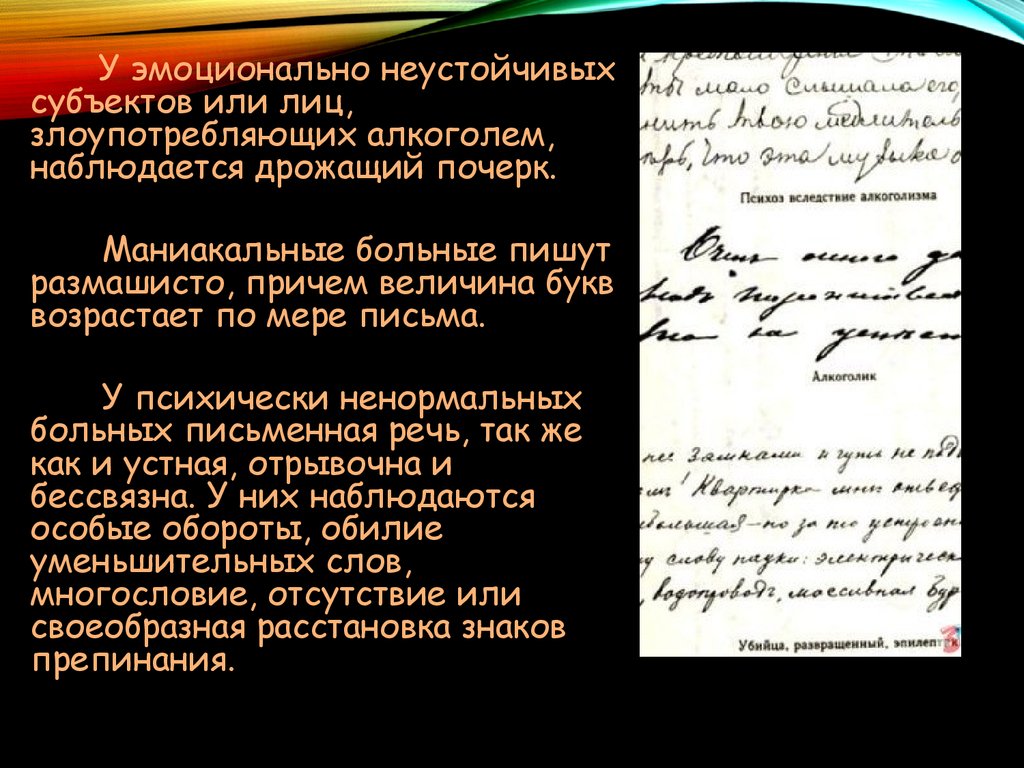 У эмоционально неустойчивых
субъектов или лиц,
злоупотребляющих алкоголем,
наблюдается дрожащий почерк.
Маниакальные больные пишут
размашисто, причем величина букв
возрастает по мере письма.
У психически ненормальных
больных письменная речь, так же
как и устная, отрывочна и
бессвязна. У них наблюдаются
особые обороты, обилие
уменьшительных слов,
многословие, отсутствие или
своеобразная расстановка знаков
препинания.
ты мало слышала его,
нить твою
что эта музыка
Психоз вследствие алкоголизма
Очень много
на
Алкоголик
замками и чуть не
Квартирка мнѣ
большая - но за то
слову падки:
водопроводъ, массивная
Убийца, развращенный, эпилептик